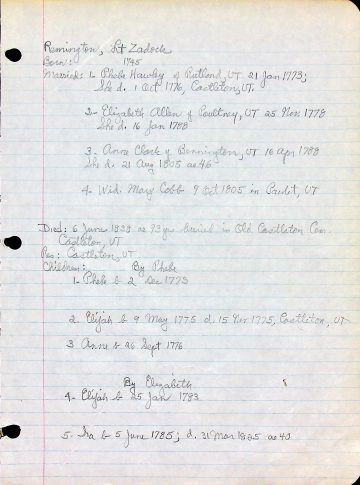 Remington, Lt Zadock
Born: 1745
Married: 1- Phebe Hawley of Rutland, VT 21 Jan 1773;
She d. 1 Oct 1776, Castleton, VT.
2- Elizabeth Allen of Poultney, VT 25 Nov 1778
She d. 16 Jan 1788
3. Anne Clark of Bennington, VT 16 Apr 1788
She d. 21 Aug 1805 ae 46
4. Wid. Mary Cobb 9 Oct 1805 in VT
Died: 6 June 1838 ae 93 yr buried in Old Castleton Cem.
Castleton, VT
Res: Castleton, VT
Children: By Phebe
1. Phebe b 2 Dec 1773
2. Elijah b 9 May 1775 d. 15 Nov 1775, Castleton, VT
3 Anne b 26 Sept 1776
By Elizabeth
4- Elijah b 25 Jan 1783
5. Ira b 5 June 1785; d. 31 Mar 1825 ae 40